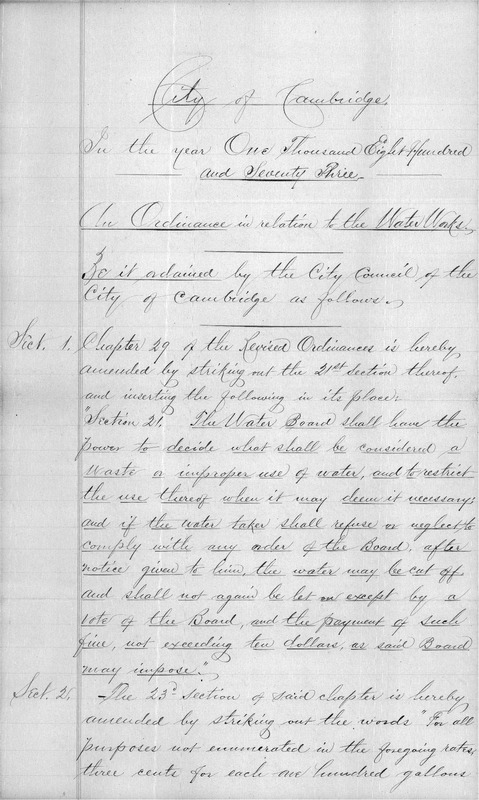 City of Cambridge.
In the year One Thousand Eight Hundred
and Seventy Three.
An Ordinance in relation to the Water Works.
Be it ordained by the City Council of the
City of Cambridge as follows.
Sect. 1. Chapter 29 of the Revised Ordinances is hereby
amended by striking out the 21st section thereof.
and inserting the following in its place:
"Section 21. The Water Board shall have the
power to decide what shall be considered a
waste or improper use of water, and to restrict
the use thereof when it may deem it necessary;
and if the water taker shall refuse or neglect to
comply with any order of the Board, after
notice given to him, the water may be cut off
and shall not again be let on except by a
vote of the Board, and the payment of such
fine, not exceeding ten dollars, as said Board
may impose."
Sect. 2. The 23d section of said chapter is hereby
amended by striking out the words "For all
purposes not enumerated in the foregoing rates,
three cents for each one hundred gallons